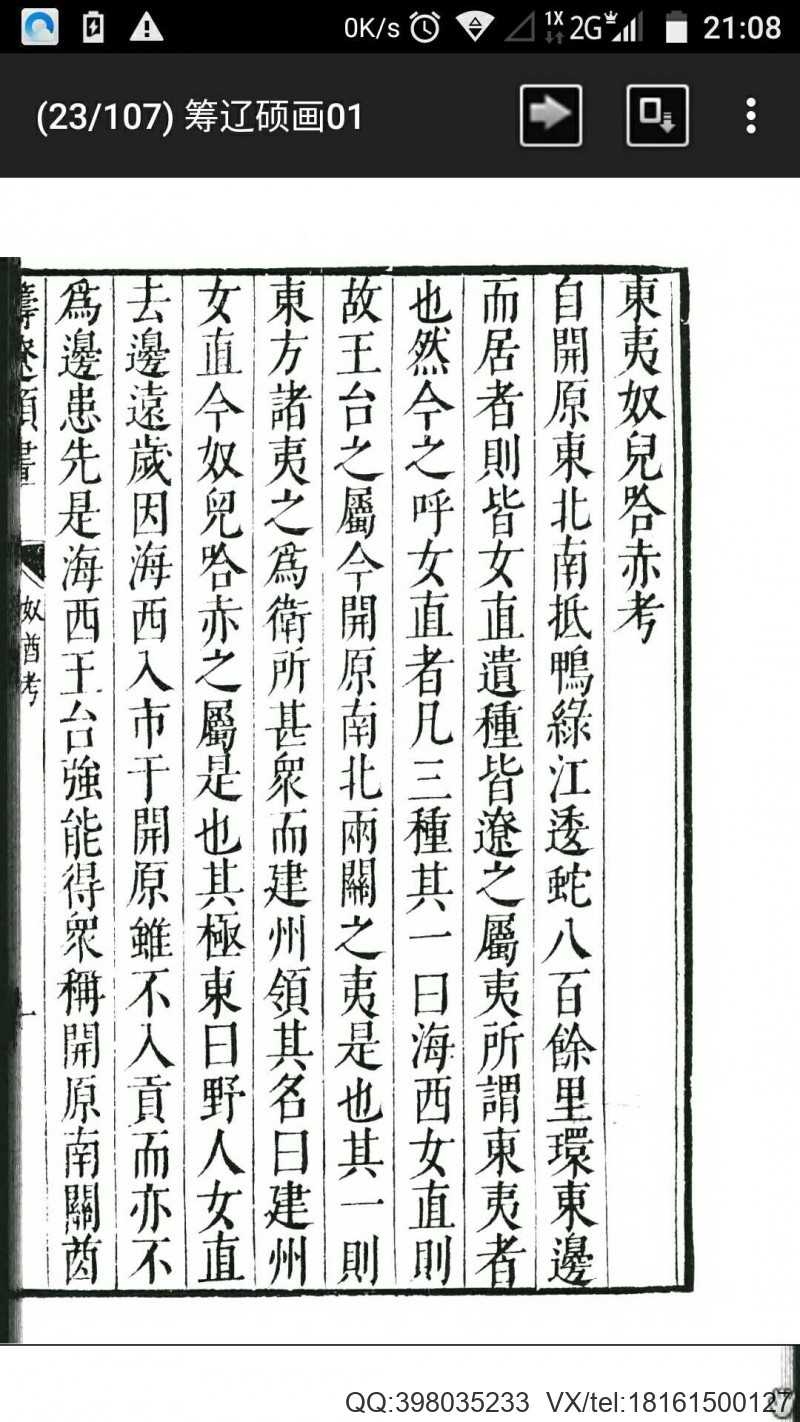 0K/s 1X 2G 21:08
(23/107) 筹辽硕画01
東夷奴兒哈赤考
自開原東北南抵鴨綠江逶蛇八百餘里環東邊
而居者則皆女直遺種皆遼之屬夷所謂東夷者
也然今之呼女直者凡三種其一曰海西女直則
故王台之屬今開原南北兩關之夷是也其一則
東方諸夷之爲衛所甚衆而建州領其名曰建州
女直今奴兒哈赤之屬是也其極東曰野人女直
去邊遠歲因海西入市于開原雖不入貢而亦不
爲邊患先是海西王台強能得衆稱開原南關酋
奴酋考
一
QQ:398035233 VX/tel:18161500127